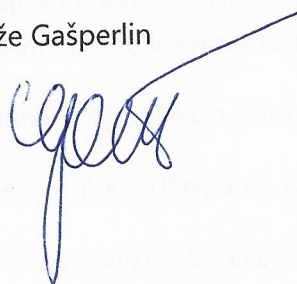 že Gašperlin